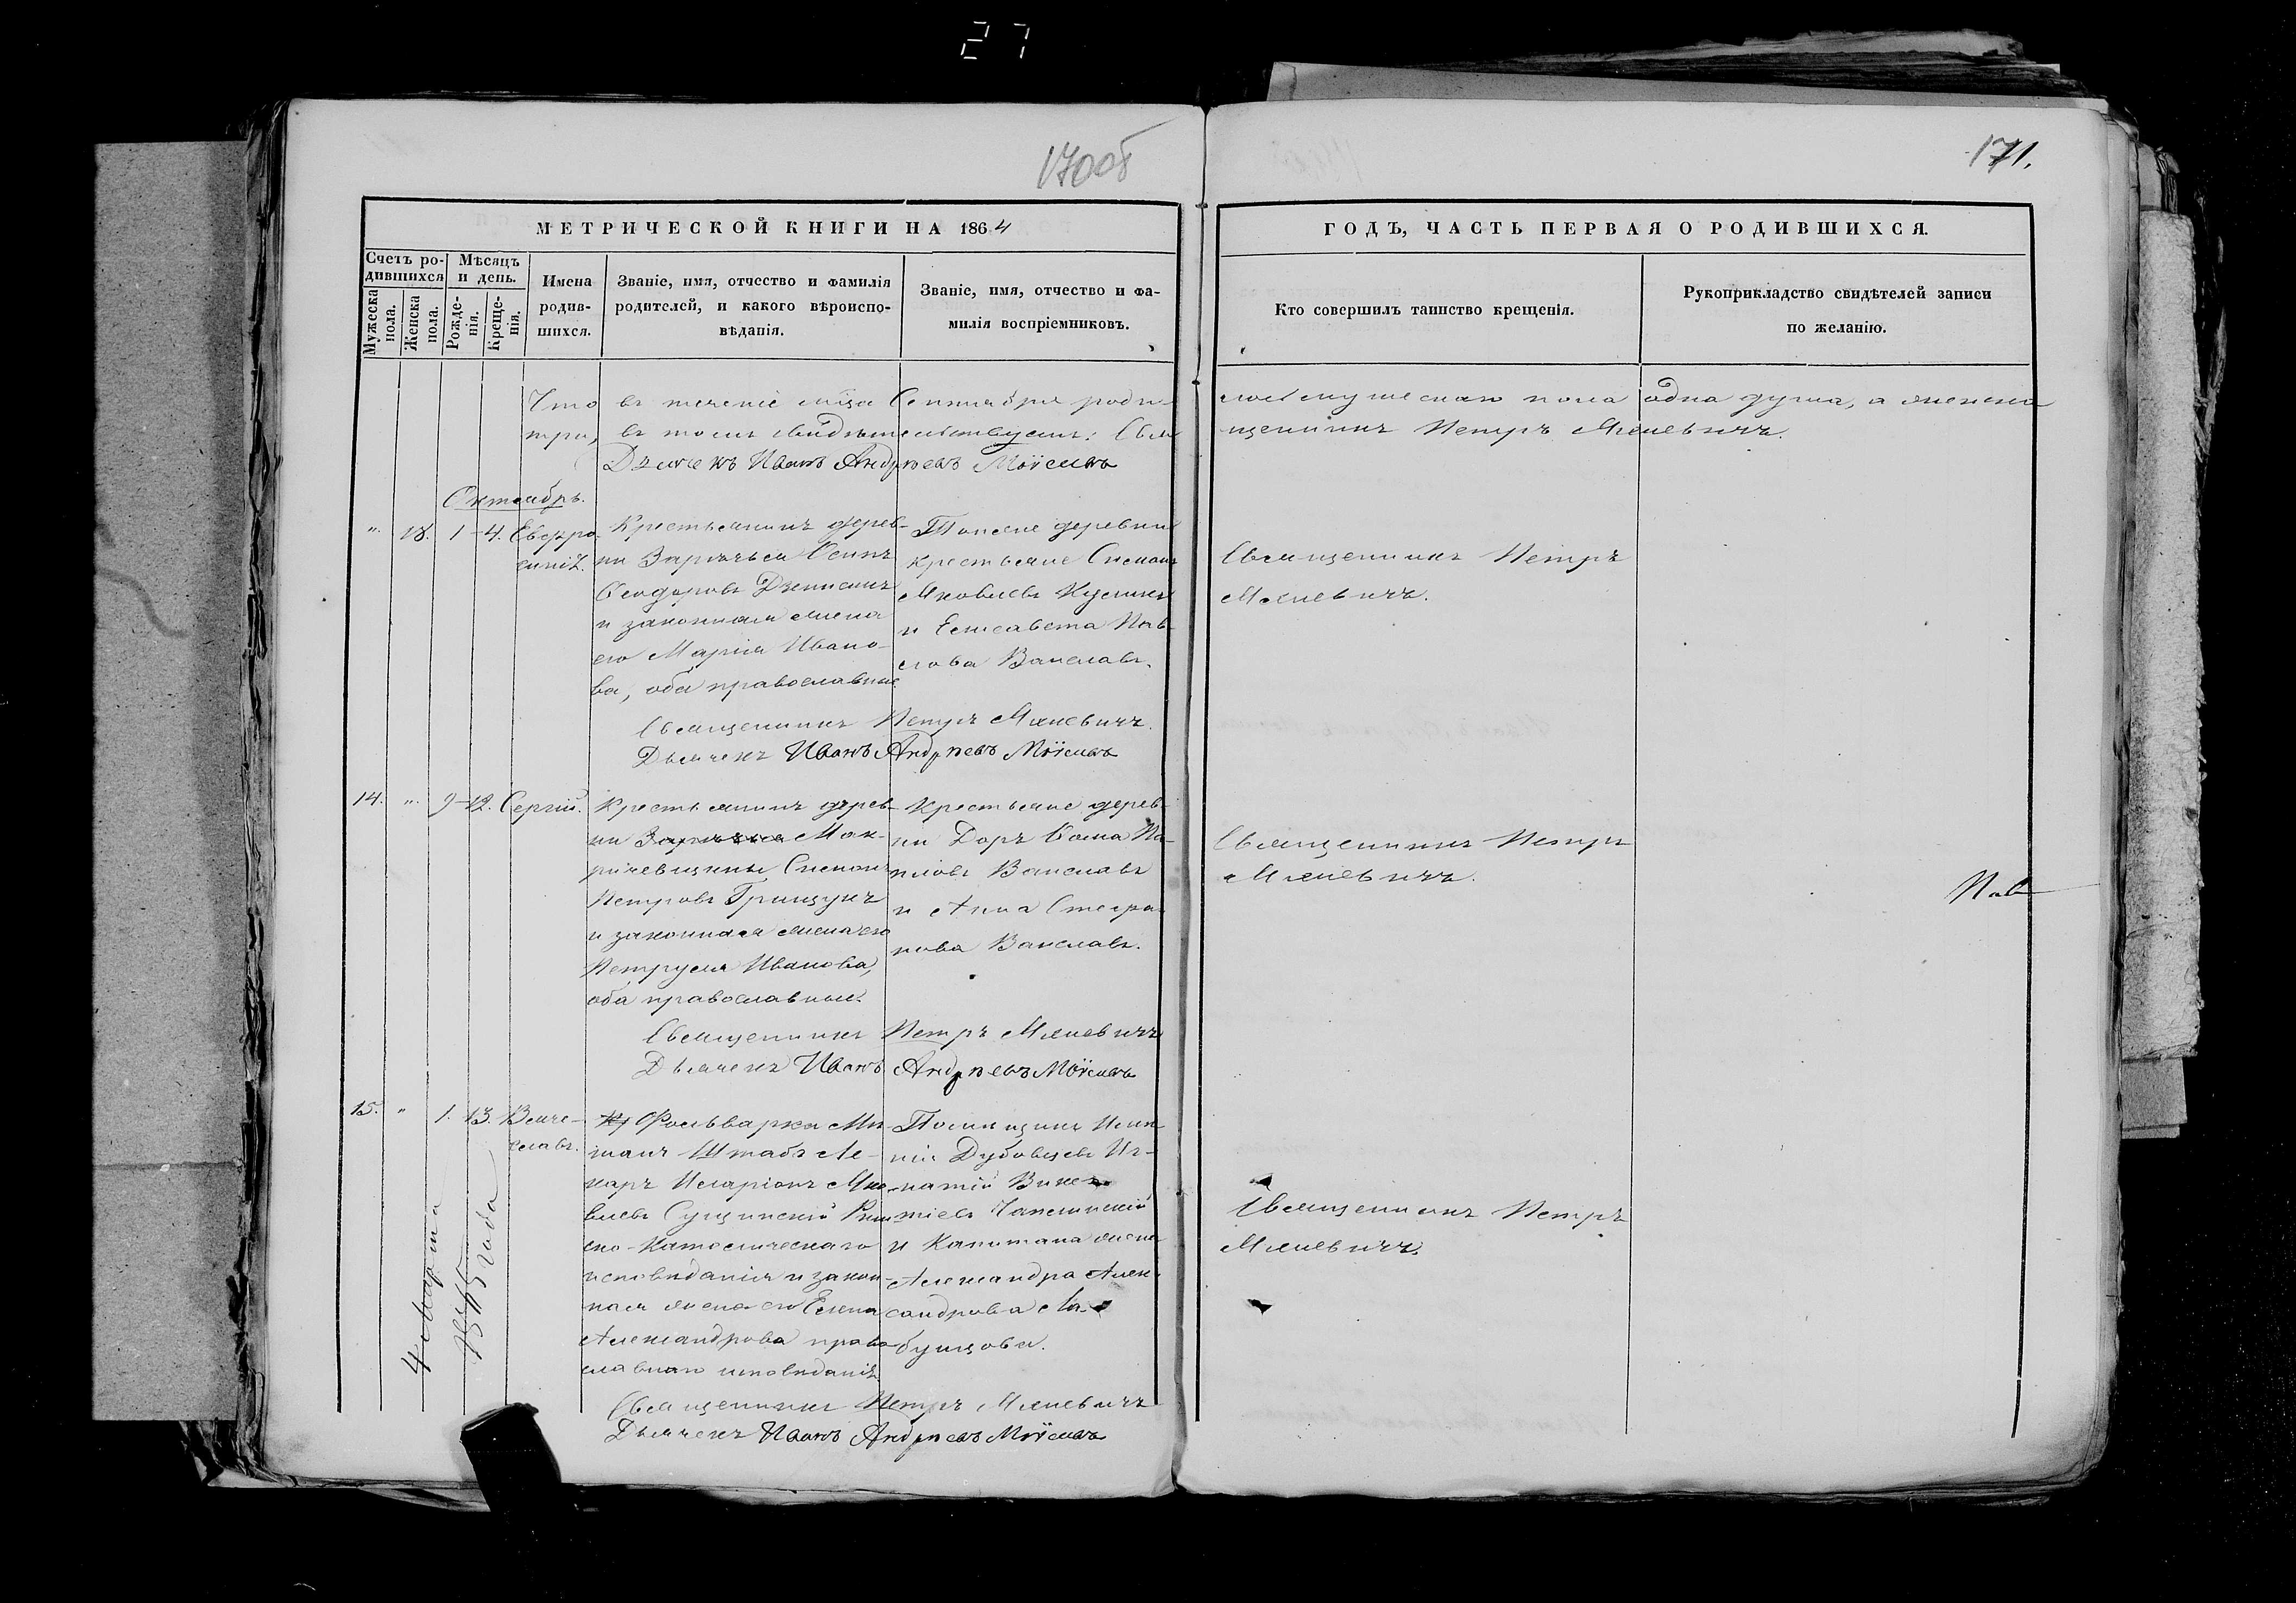 27
170об
171.
МЕТРИЧЕСКОЙ КНИГИ НА 1864
ГОДЪ, ЧАСТЬ ПЕРВАЯ О РОДИВШИХСЯ.
Счетъ ро-
дившихся
Мужеска
пола.
Женска
пола.
Мѣсяцъ
и день.
Рожде-
нія.
Креще-
нія.
Имена
родив-
шихся.
Званіе, имя, отчество и фамилія
родителей, и какого вѣроиспо-
вѣданія.
Званіе, имя, отчество и фа-
милія воспріемниковъ.
Кто совершилъ таинство крещенія.
Рукоприкладство свидѣтелей записи
по желанію.
Что въ теченіе мѣсца Сентября роди-
лось мужескаго пола одна душа, а женска
три, въ томъ свидѣтельствуемъ: Свя
щенникъ Петръ
Дьячекъ Иванъ Андреевъ Моисеевъ
Октябрь.
" 18. 1 4. Евфро-
синія.
Крестьянинъ дерев-
ни Зарѣчья Осипъ
Ѳеодоровъ
и законная жена
его Марія Ивано-
ва, оба православные.
Тойже деревни
крестьяне Степанъ
Яковлевъ
и Елисавета Пав-
лова
Священникъ Петръ
Священникъ Петръ
Дьячекъ Иванъ Андреевъ Моисеевъ
14. " 9 12. Сергій.
Крестьянинъ дерев-
ни Зарѣчья Мак-
ричевщины Степанъ
Петровъ Грищукъ
и законная жена его
Петруся Иванова,
оба православные.
Крестьяне дерев-
ни Доръ Ѳома
и Анна Стефа-
нова
Священникъ Петръ
Священникъ Петръ
Дьячекъ Иванъ Андреевъ Моисеевъ
15. " 1. 13. Вяче-
славъ.
4 Марта
1865 года
Фольварка
Штабъ Ле-
карь Иларіонъ Яко-
влевъ Сущинскій Рим
ско-Католическаго
исповѣданія и закон-
ная жена его Елена
Александрова право-
славнаго исповѣданія.
Помѣщикъ Имѣ-
нія Дубовцевъ Иг-
натій
и Капитана жена
Александра Алек-
сандрова
Священникъ Петръ
Священникъ Петръ
Дьячекъ Иванъ Андреевъ Моисеевъ
Пав